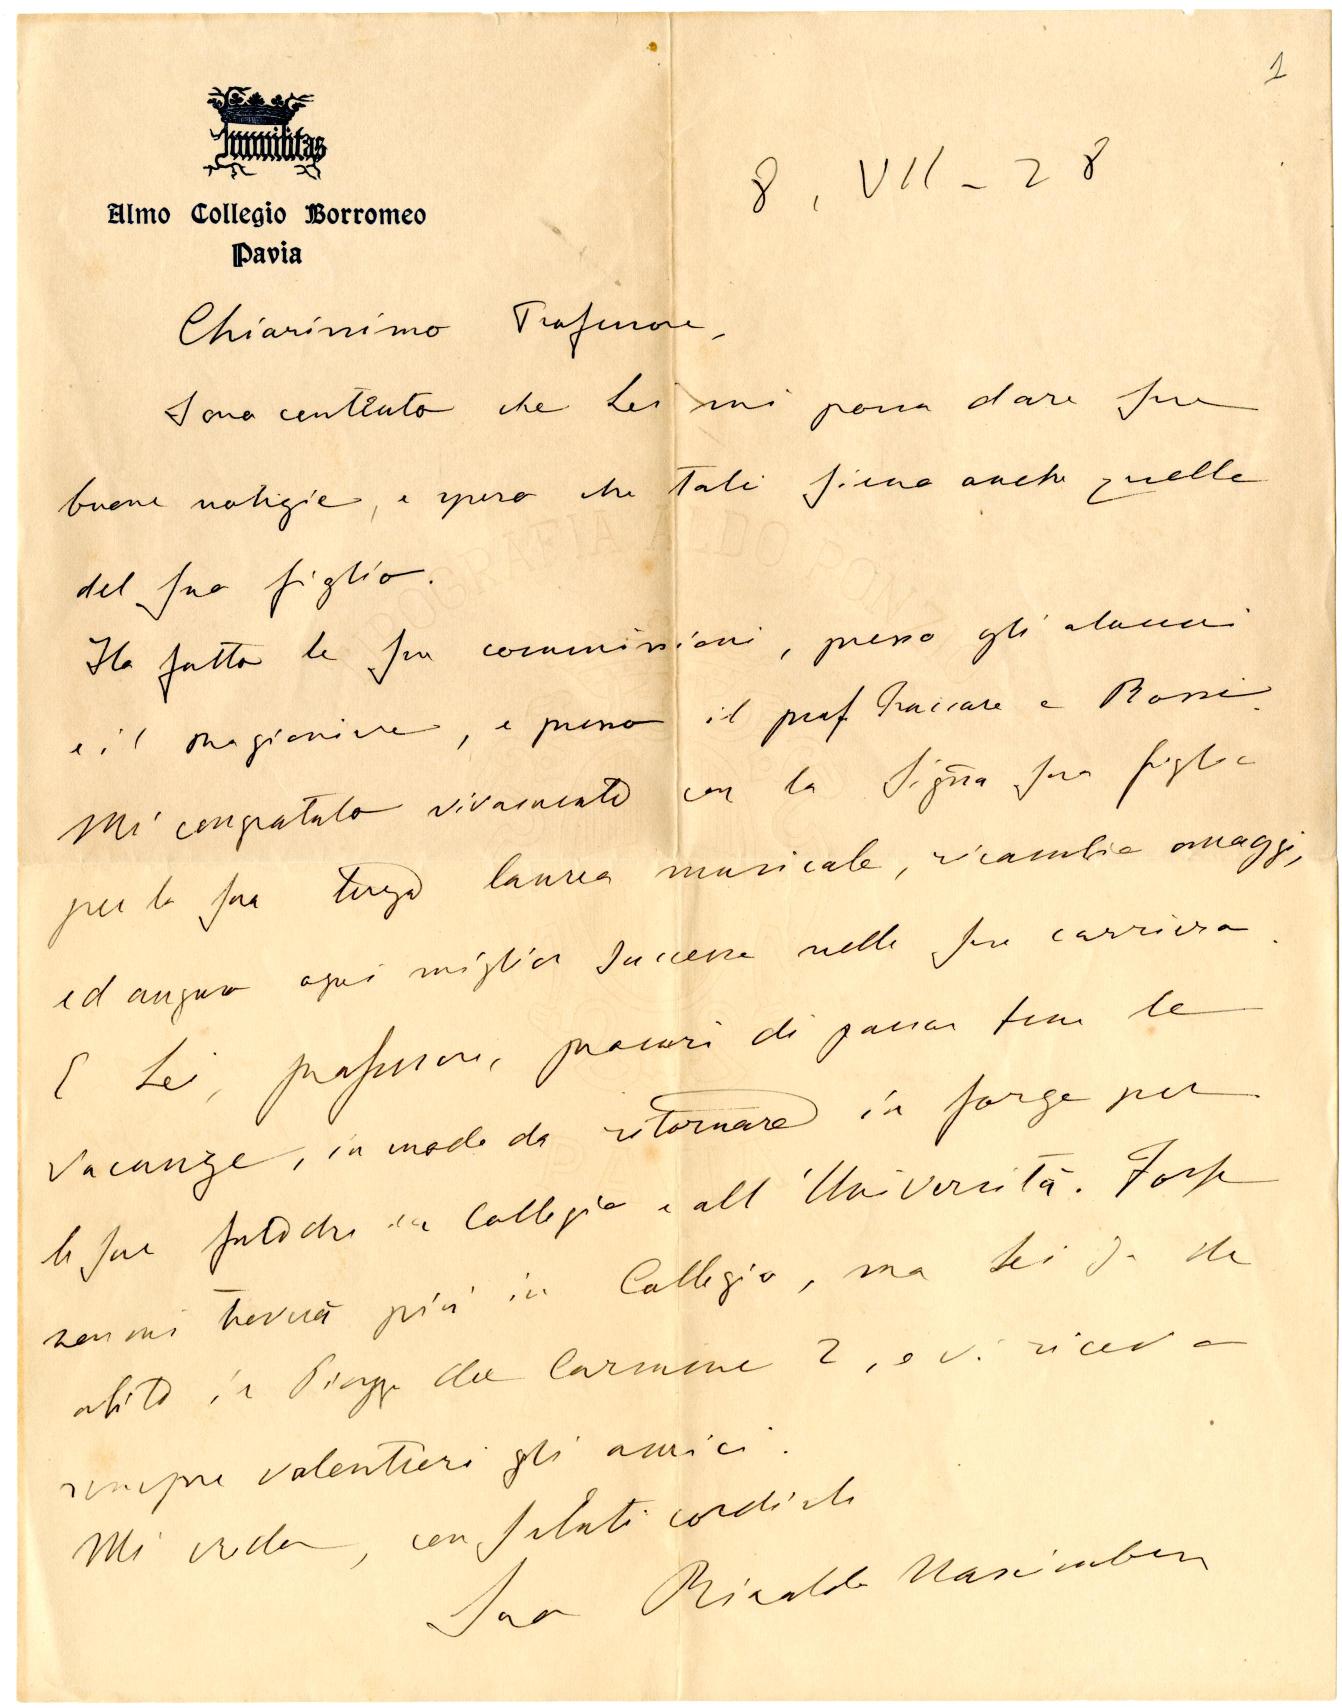 1
Humilitas
Almo Collegio Borromeo
Pavia
8, VII - 28
Chiarissimo Professore,
Sono contento che Lei mi possa dare sue
buone notizie, e spero che tali siano anche quelle
del suo figlio.
Ho fatto le sue commissioni, presso gli alunni
e il ragioniere, e presso il prof. e Rossi.
Mi congratulo vivamente con la Sig.na sua figlia
per la sua terza laurea musicale, ricambio omaggi,
ed auguro ogni miglior successo nella sua carriera.
E Lei, professore, procuri di passar bene le
vacanze, in modo da ritornare in forze per
le sue fatiche in Collegio e all'Università. Forse
non mi troverà più in Collegio, ma Lei sa che
abito in Piazza del Carmine 2, e vi ricevo
sempre volentieri gli amici.
Mi creda, con saluti cordiali
Suo Rinaldo Nascimbeni